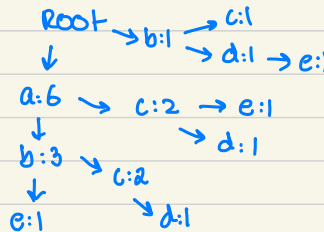 ROOT → b:1 → c:1
→ d:1 → e:
a:6 → c:2 → e:1
→ d:1
b:3 → c:2
e:1 → d:1